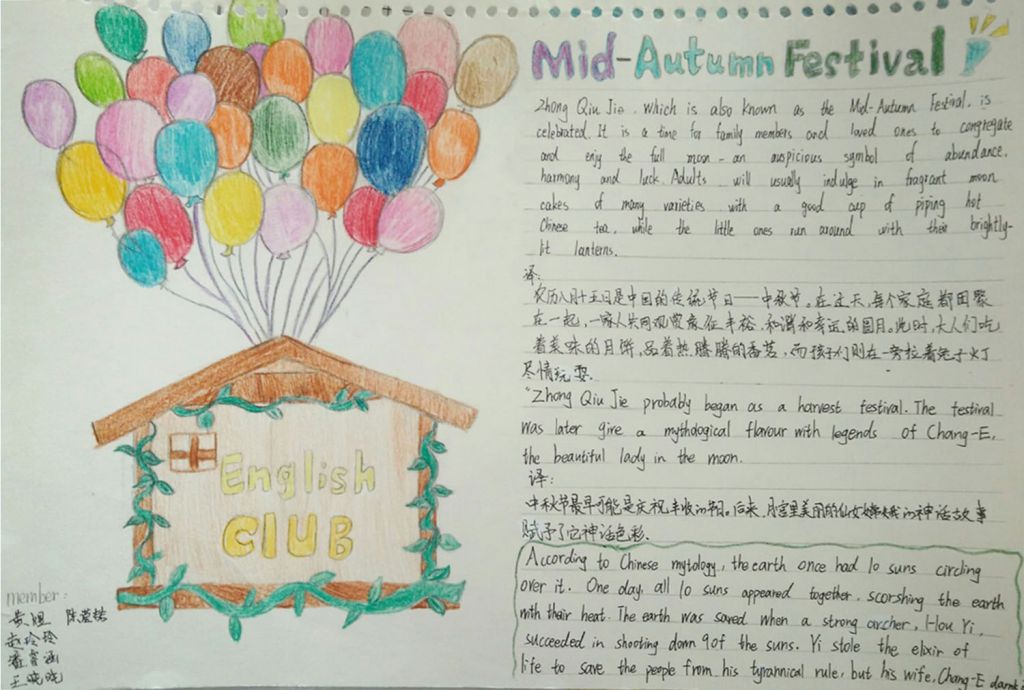 Mid-Autumn Festival
Zhong Qiu Jie, which is also known as the Mid-Autumn Festival, is
celebrated. It is a time for family members and loved ones to congregate
and enjy the full moon - an auspicious symbol of abundance,
harmony and luck. Adults will usually indulge in fragrant moon
cakes of many varieties with a good cup of piping hot
Chinese tea, while the little ones run around with their brightly-
lit lanterns.
译:
农历八月十五日是中国的传统节日——中秋节。在这天,每个家庭都团聚
在一起,一家人共同观赏象征丰裕、和谐和幸运的圆月。此时,大人们吃
着美味的月饼,品着热腾腾的香茗,而孩子们则在一旁拉着兔子灯
尽情玩耍.
"Zhong Qiu Jie probably began as a harvest festival. The festival
was later give a mythological flavour with legends of Chang-E,
the beautiful lady in the moon.
译:
中秋节最早可能是庆祝丰收的节日。后来,月宫里美丽的仙女嫦娥的神话故事
赋予了它神话色彩.
According to Chinese mytology, the earth once had 10 suns circling
over it. One day, all 10 suns appeared together, scorshing the earth
with their heat. The earth was saved when a strong archer, Hou Yi,
succeeded in shooting down 9 of the suns. Yi stole the elixir of
life to save the people from his tyrannical rule, but his wife, Chang-E
English
CLUB
member:
王晓晓